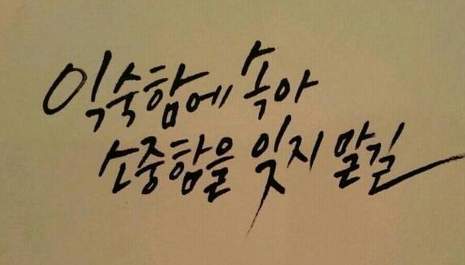 익숙함에 속아
소중함을 잊지 말길